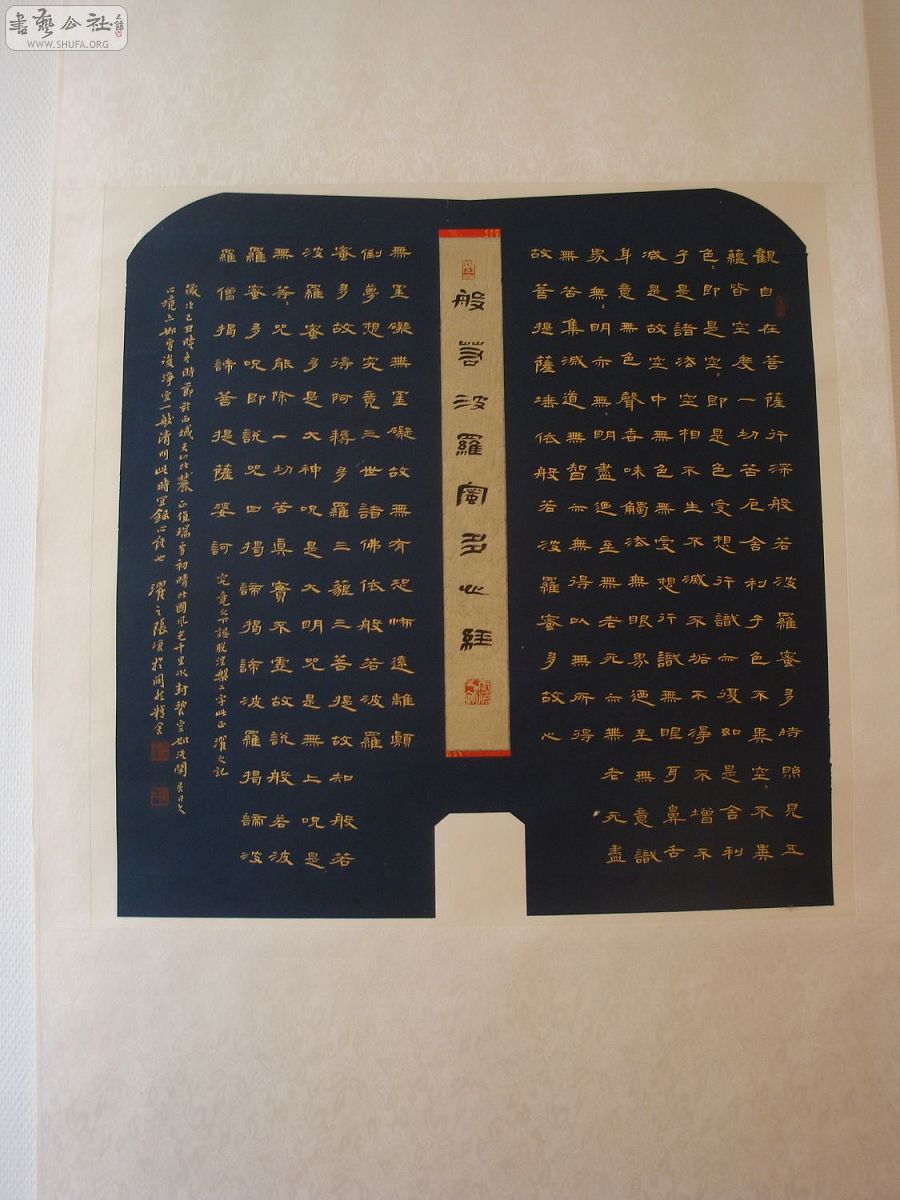 書藝公社
WWW.SHUFA.ORG
觀自在菩薩行深般若波羅蜜多時照見五
蘊皆空度一切苦厄舍利子色不異空:不異
色:即是空:即是色受想行識亦復如是舍利
子是諸法空相不生不滅不垢不淨不增不
減是故空中無色無受想行識無眼耳鼻舌
身意無色聲香味觸法無眼界迺至無意識
界無:明亦無:明盡迺至無老死亦無老死盡
無苦集滅道無智亦無得以無所得
故菩提薩埵依般若波羅蜜多故心
般若波羅蜜多心經
無罣礙無罣礙故無有恐怖遠離顛
倒夢想究竟三世諸佛依般若波羅
蜜多故得阿耨多羅三藐三菩提故知般若
波羅蜜多是大神咒是大明咒是無上咒是
無等:咒能除一切苦真實不虛故說般若波
羅蜜多咒即說咒曰揭諦揭諦波羅揭諦波
羅僧揭諦菩提薩婆訶
究竟下誤脫涅槃二字此正 濯之記
歲次己丑時冬時節於西域天山北麓正值瑞雪初晴北國風光千里冰封
心境亦如雪後淨空一般清明此時宜錄心經也 濯之張